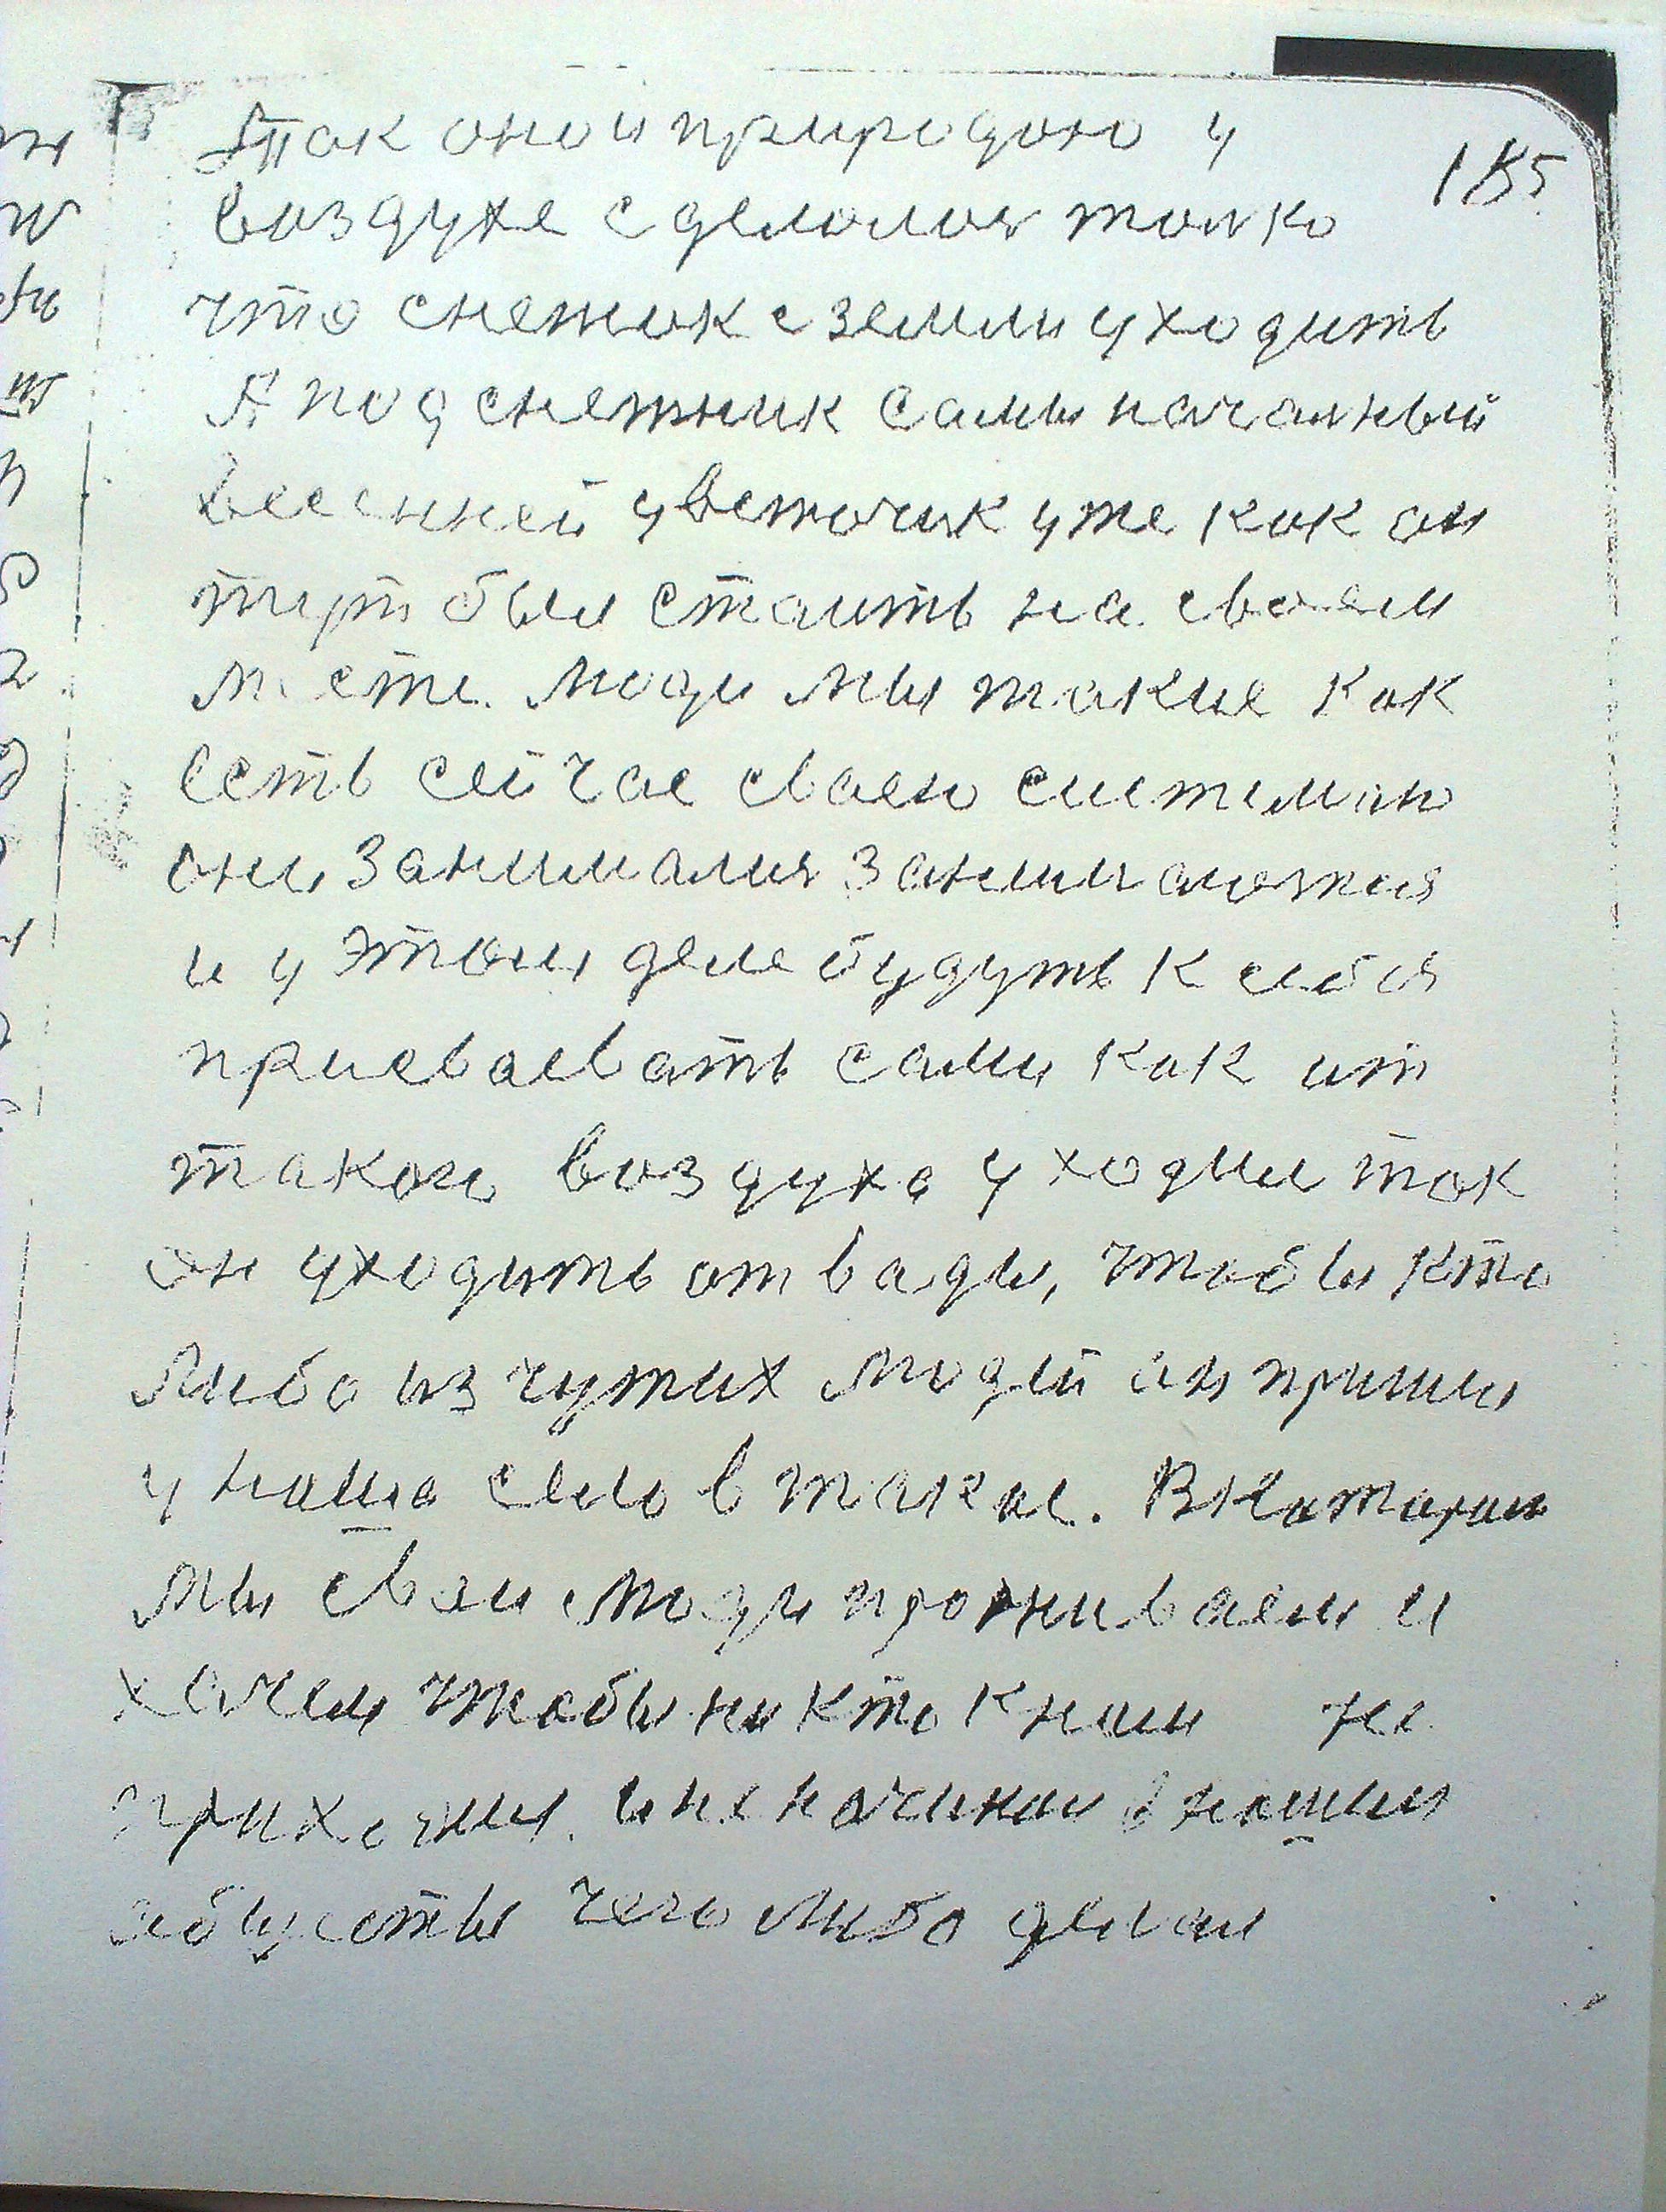 185
Атак оно и природою у
воздухе сделолоя толко
что снежок с земли уходить
А подснежник самы началный
весенней уветочик уже как он
тут был стаить на своем
месте. Люди мы такие как
есть сейчас сваею системаю
они занималия занимаютия
и у этом деле будуть к себя
присваевать сами как ит
такого воздуха уходил так
он уходить от вады, чтобы кто
либо из чужих людей он пришол
у наша село в такое. В каторам
мы сваи люди проживаем и
хочем чтобы никто к нам не
приходил. и не начинал в нашим
чего либо делал